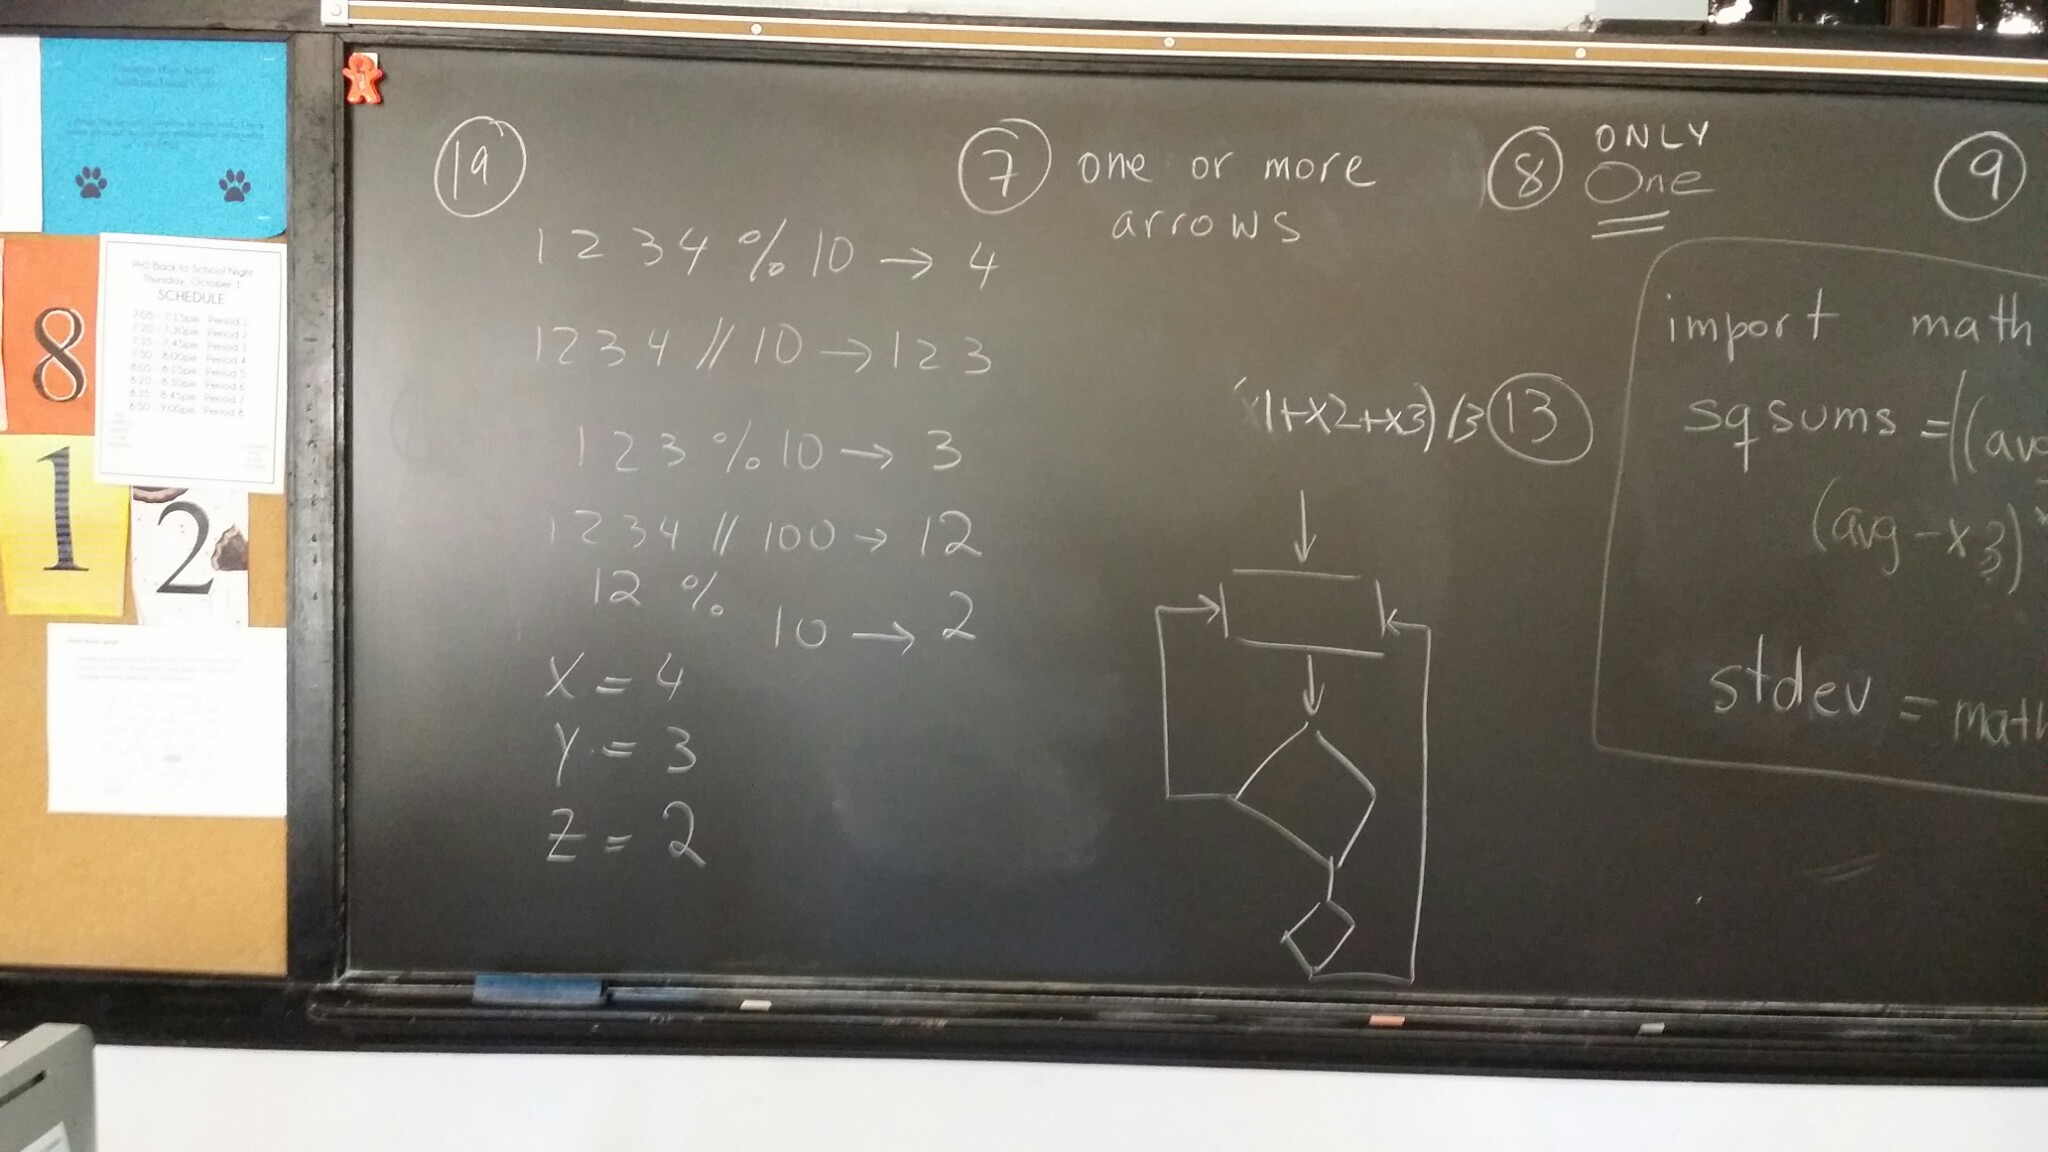 PHS Back to School Night
Thursday, October 1
SCHEDULE
7:05 - 7:15pm Period 1
7:20 - 7:30pm Period 2
7:35 - 7:45pm Period 3
7:50 - 8:00pm Period 4
8:05 - 8:15pm Period 5
8:20 - 8:30pm Period 6
8:35 - 8:45pm Period 7
8:50 - 9:00pm Period 8
8
1
2
19
1234 % 10 → 4
1234 // 10 → 123
123 % 10 → 3
1234 // 100 → 12
12 % 10 → 2
X = 4
Y = 3
Z = 2
7 one or more
arrows
8 ONLY
One
(x1+x2+x3)/3 13
9
import math
sqsums = ((avg
(avg - x3)*
stdev = math